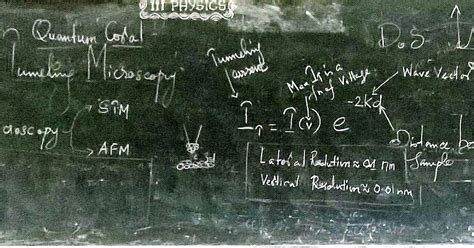 III PHYSICS
Quantum Coral
Tunneling Microscopy
STM
AFM
Tunneling
current
Max, It is a
fn of Voltage
I = I(v) e -2Kd
DoS
Wave Vector
Distance
Sample
Lateral Resolution ≈ 0.1 nm
Vertical Resolution ≈ 0.01 nm